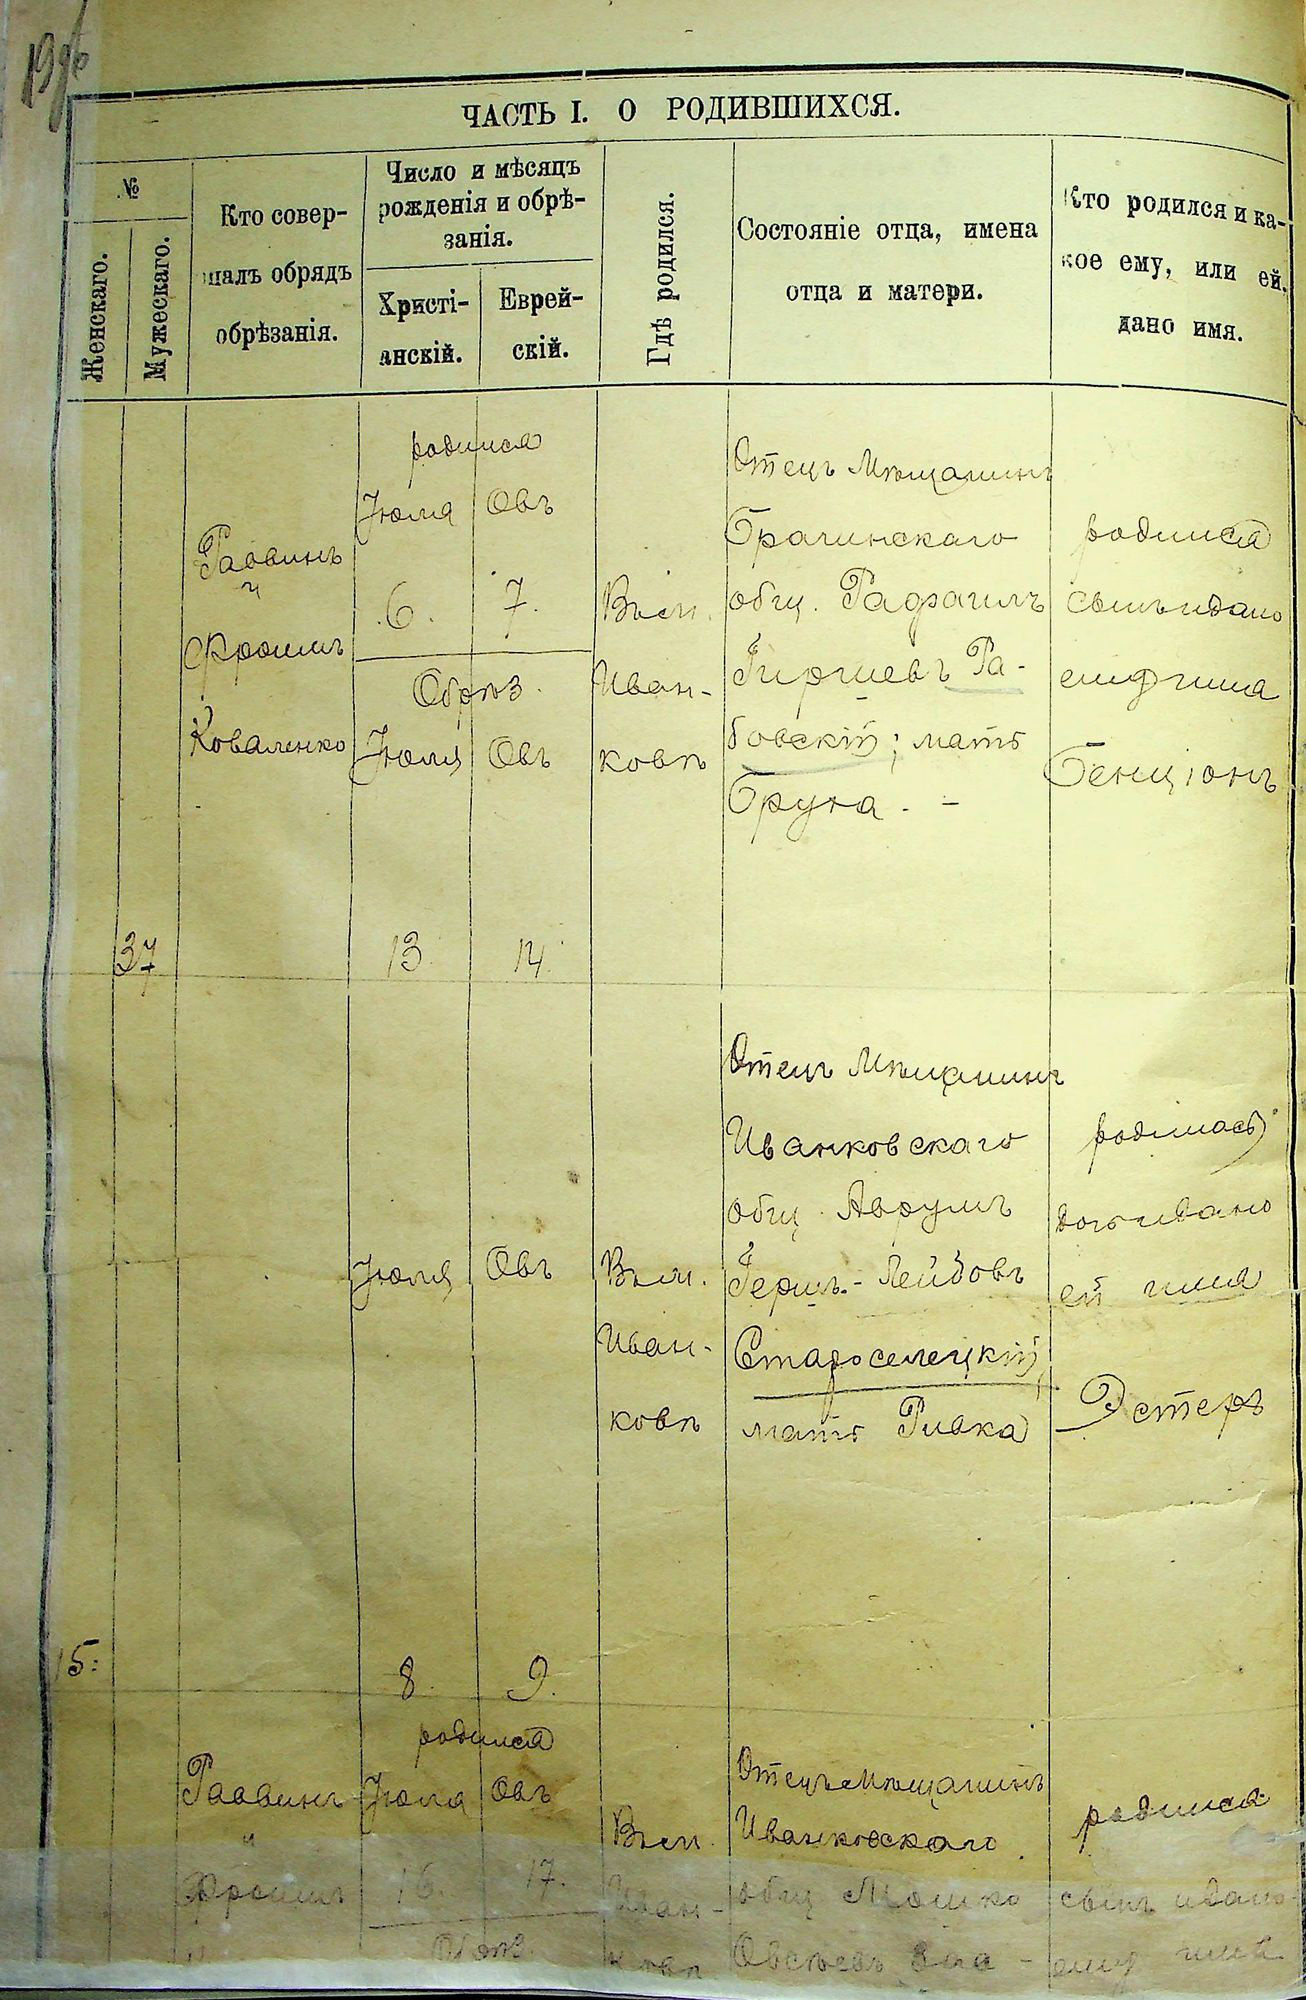 ЧАСТЬ I. О РОДИВШИХСЯ.
№
Женскаго.
Мужескаго.
Кто совер-
шалъ обрядъ
обрѣзанія.
Число и мѣсяцъ
рожденія и обрѣ-
занія.
Христі-
анскій.
Еврей-
скій.
Гдѣ родился.
Состояніе отца, имена
отца и матери.
Кто родился и ка-
кое ему, или ей
дано имя.
37
Раввинъ
Фроимъ
Коваленко
родился
Іюля Овъ
6. 7.
Обрѣз.
Іюля Овъ
13. 14.
Въ м.
Иван-
ковѣ
Отецъ Мѣщанинъ
Брагинскаго
общ. Рафаилъ
Гиршевъ Ра-
бовскій; мать
Бруха. -
родился
сынъ и дано
ему имя
Бенціонъ
15:
Іюля Овъ
8. 9.
Въ м.
Иван-
ковѣ
Отецъ Мѣщанинъ
Иванковскаго
общ. Аврумъ
Герш.-Лейбовъ
Староселецкій,
мать Ривка
родилась
дочь и дано
ей имя
Эстеръ
Раввинъ
"
Фроимъ
"
родился
Іюля Овъ
16. 17.
Обрѣз.
Въ м.
Иван-
ковѣ
Отецъ Мѣщанинъ
Иванковскаго
общ Мошко
родился
сынъ и дано
ему имя